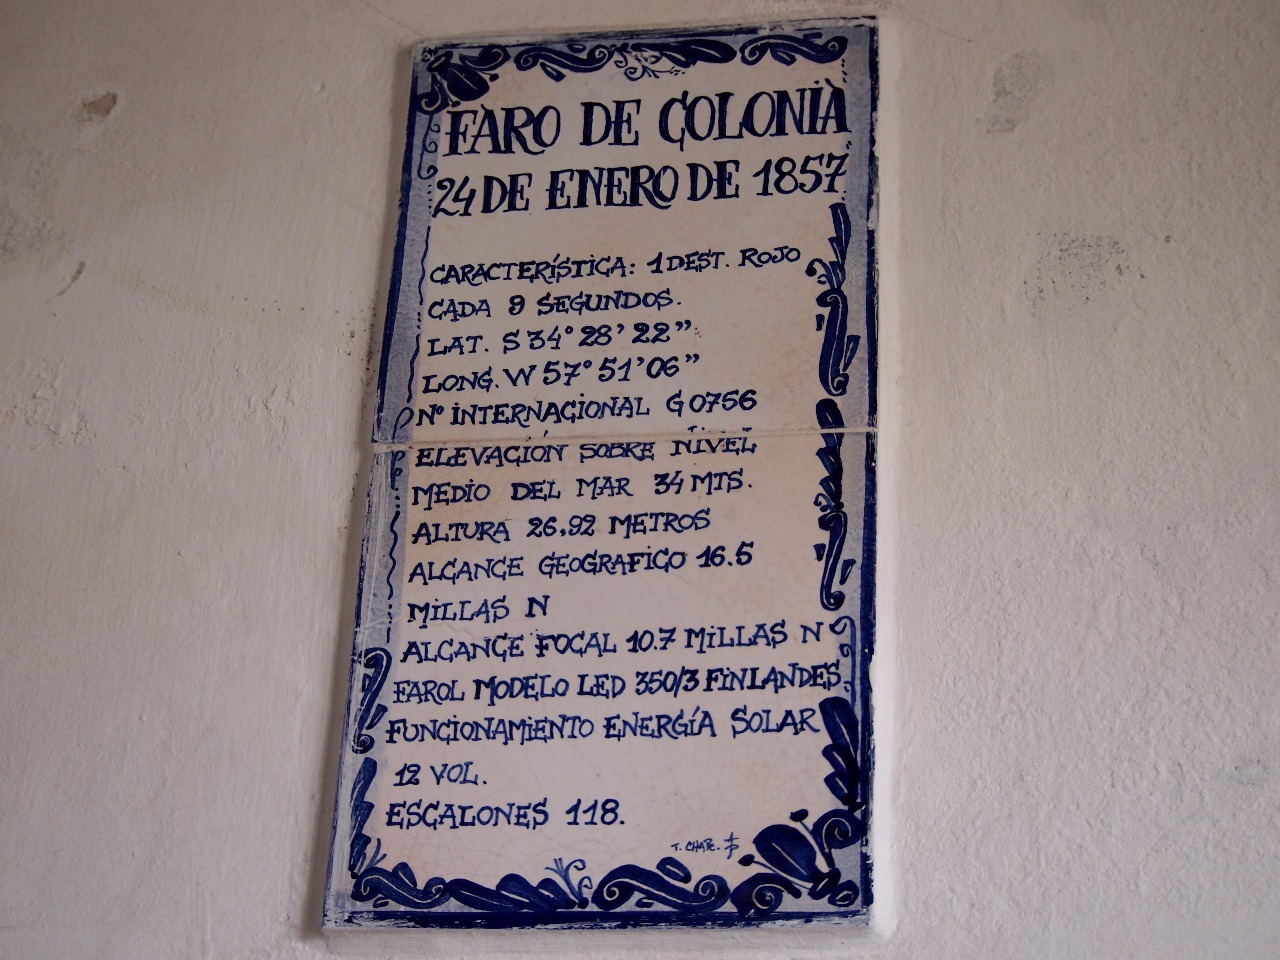 FARO DE COLONIA
24 DE ENERO DE 1857
CARACTERÍSTICA: 1 DEST. ROJO
CADA 9 SEGUNDOS.
LAT. S 34° 28' 22"
LONG. W 57° 51' 06"
Nº INTERNACIONAL G 0756
ELEVACIÓN SOBRE NIVEL
MEDIO DEL MAR 34 MTS.
ALTURA 26,92 METROS
ALCANCE GEOGRAFICO 16.5
MILLAS N
ALCANCE FOCAL 10.7 MILLAS N
FAROL MODELO LED 350/3 FINLANDES.
FUNCIONAMIENTO ENERGÍA SOLAR
12 VOL.
ESCALONES 118.